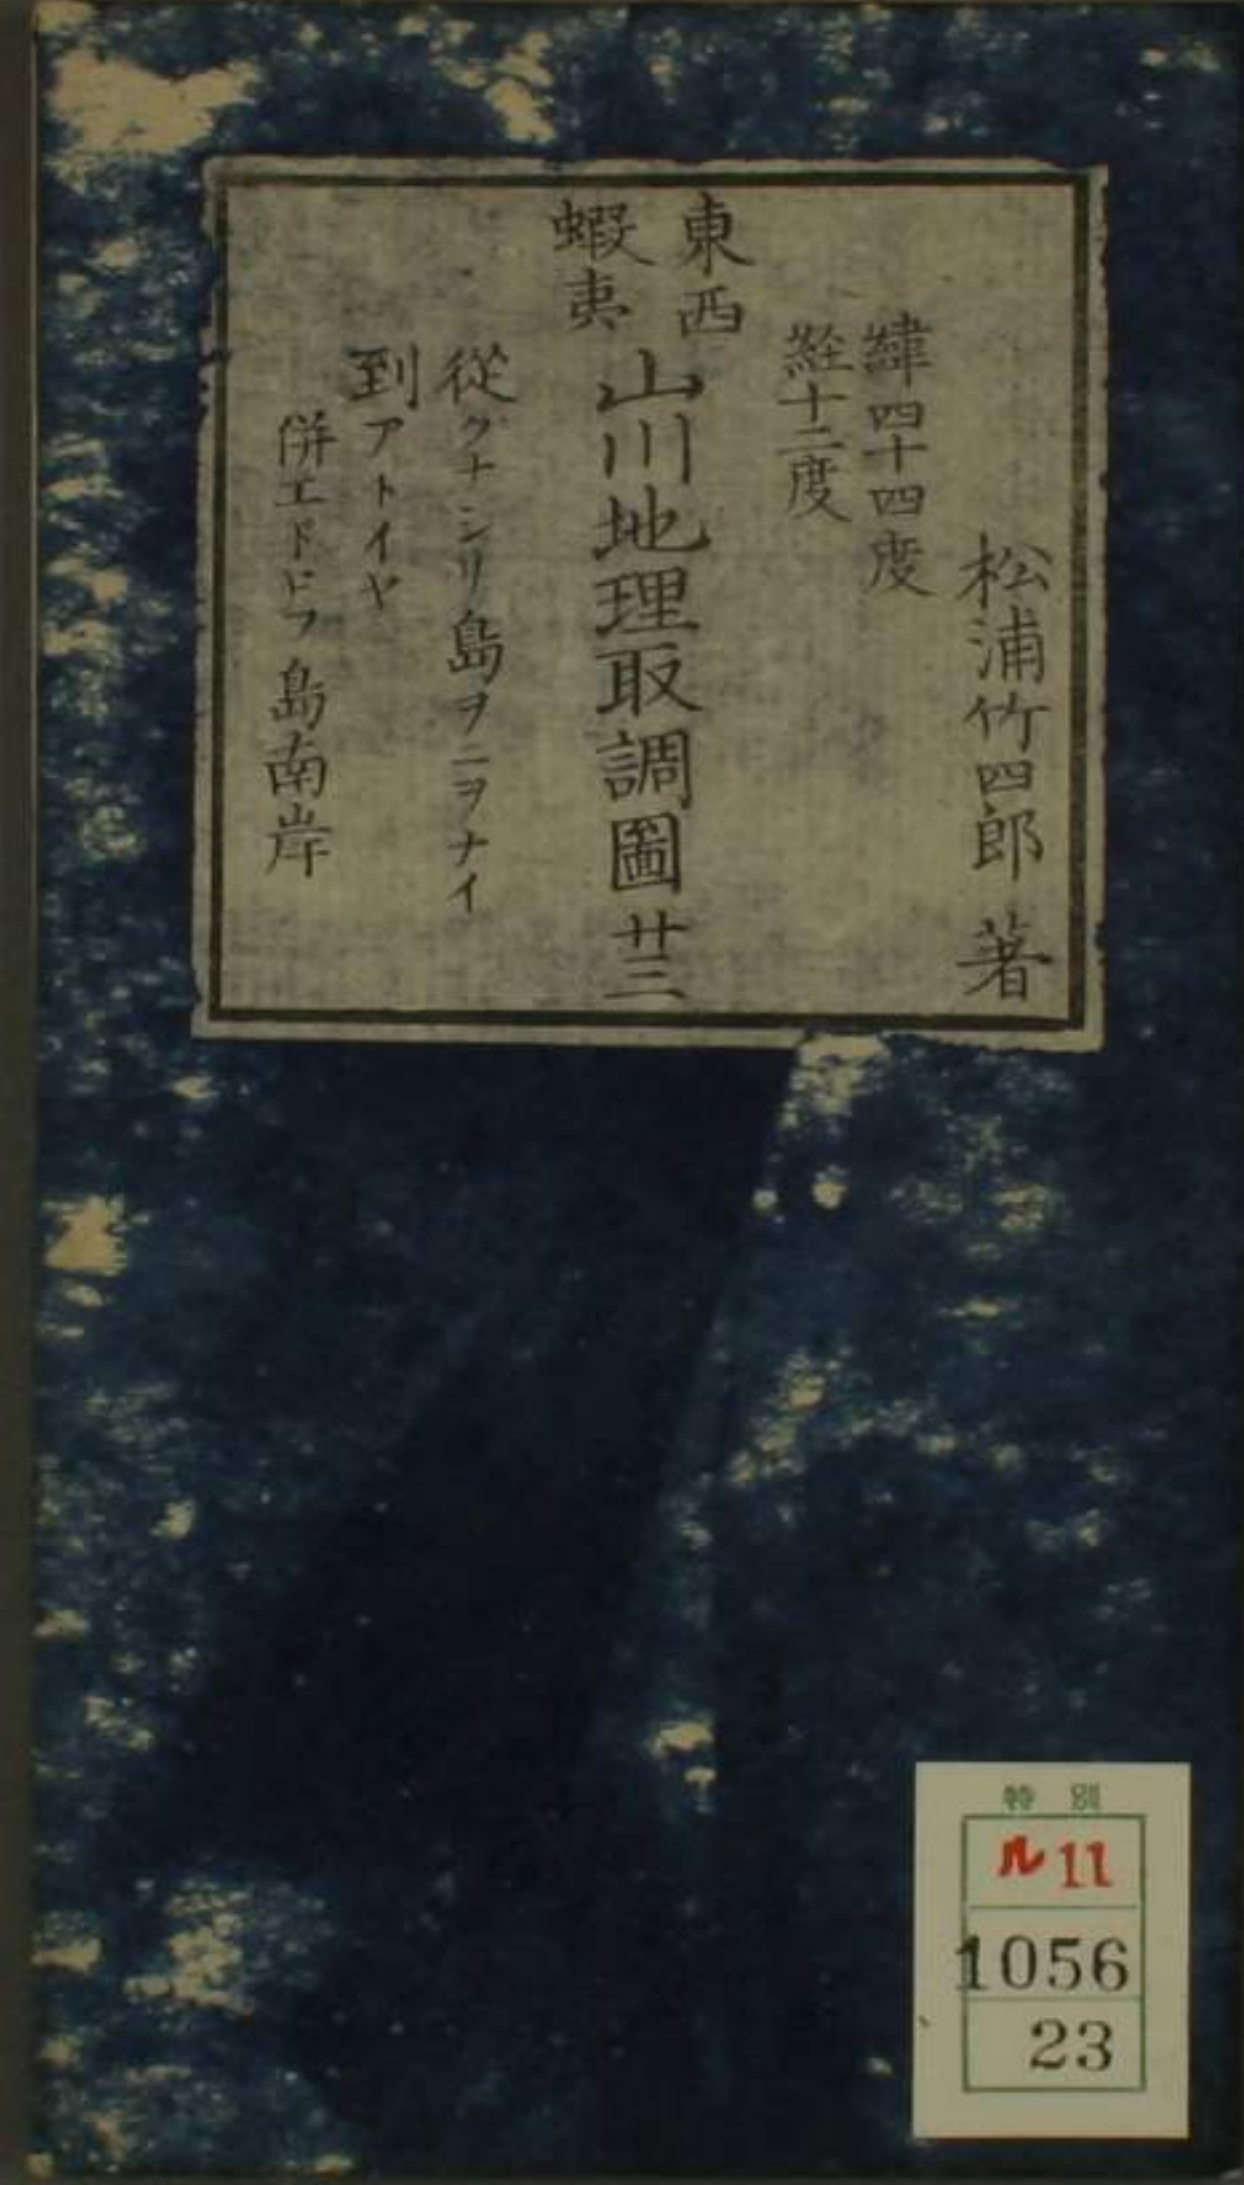 松浦竹四郎 著
緯四十四度
経十二度
東西
蝦夷
山川地理取調圖 廿三
從クナシリ島ヲニヲナイ
到アトイヤ
併エトヒラ島南岸
特別
ル 11
1056
23